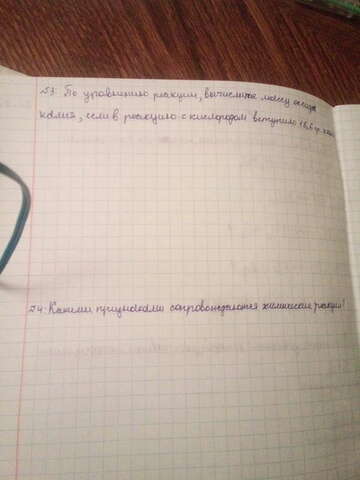 №3: По уравнению реакции, вычислите массу оксида
калия, если в реакцию с кислородом вступило 15,6 гр.
№4: Какими признаками сопровождаются химические реакции?